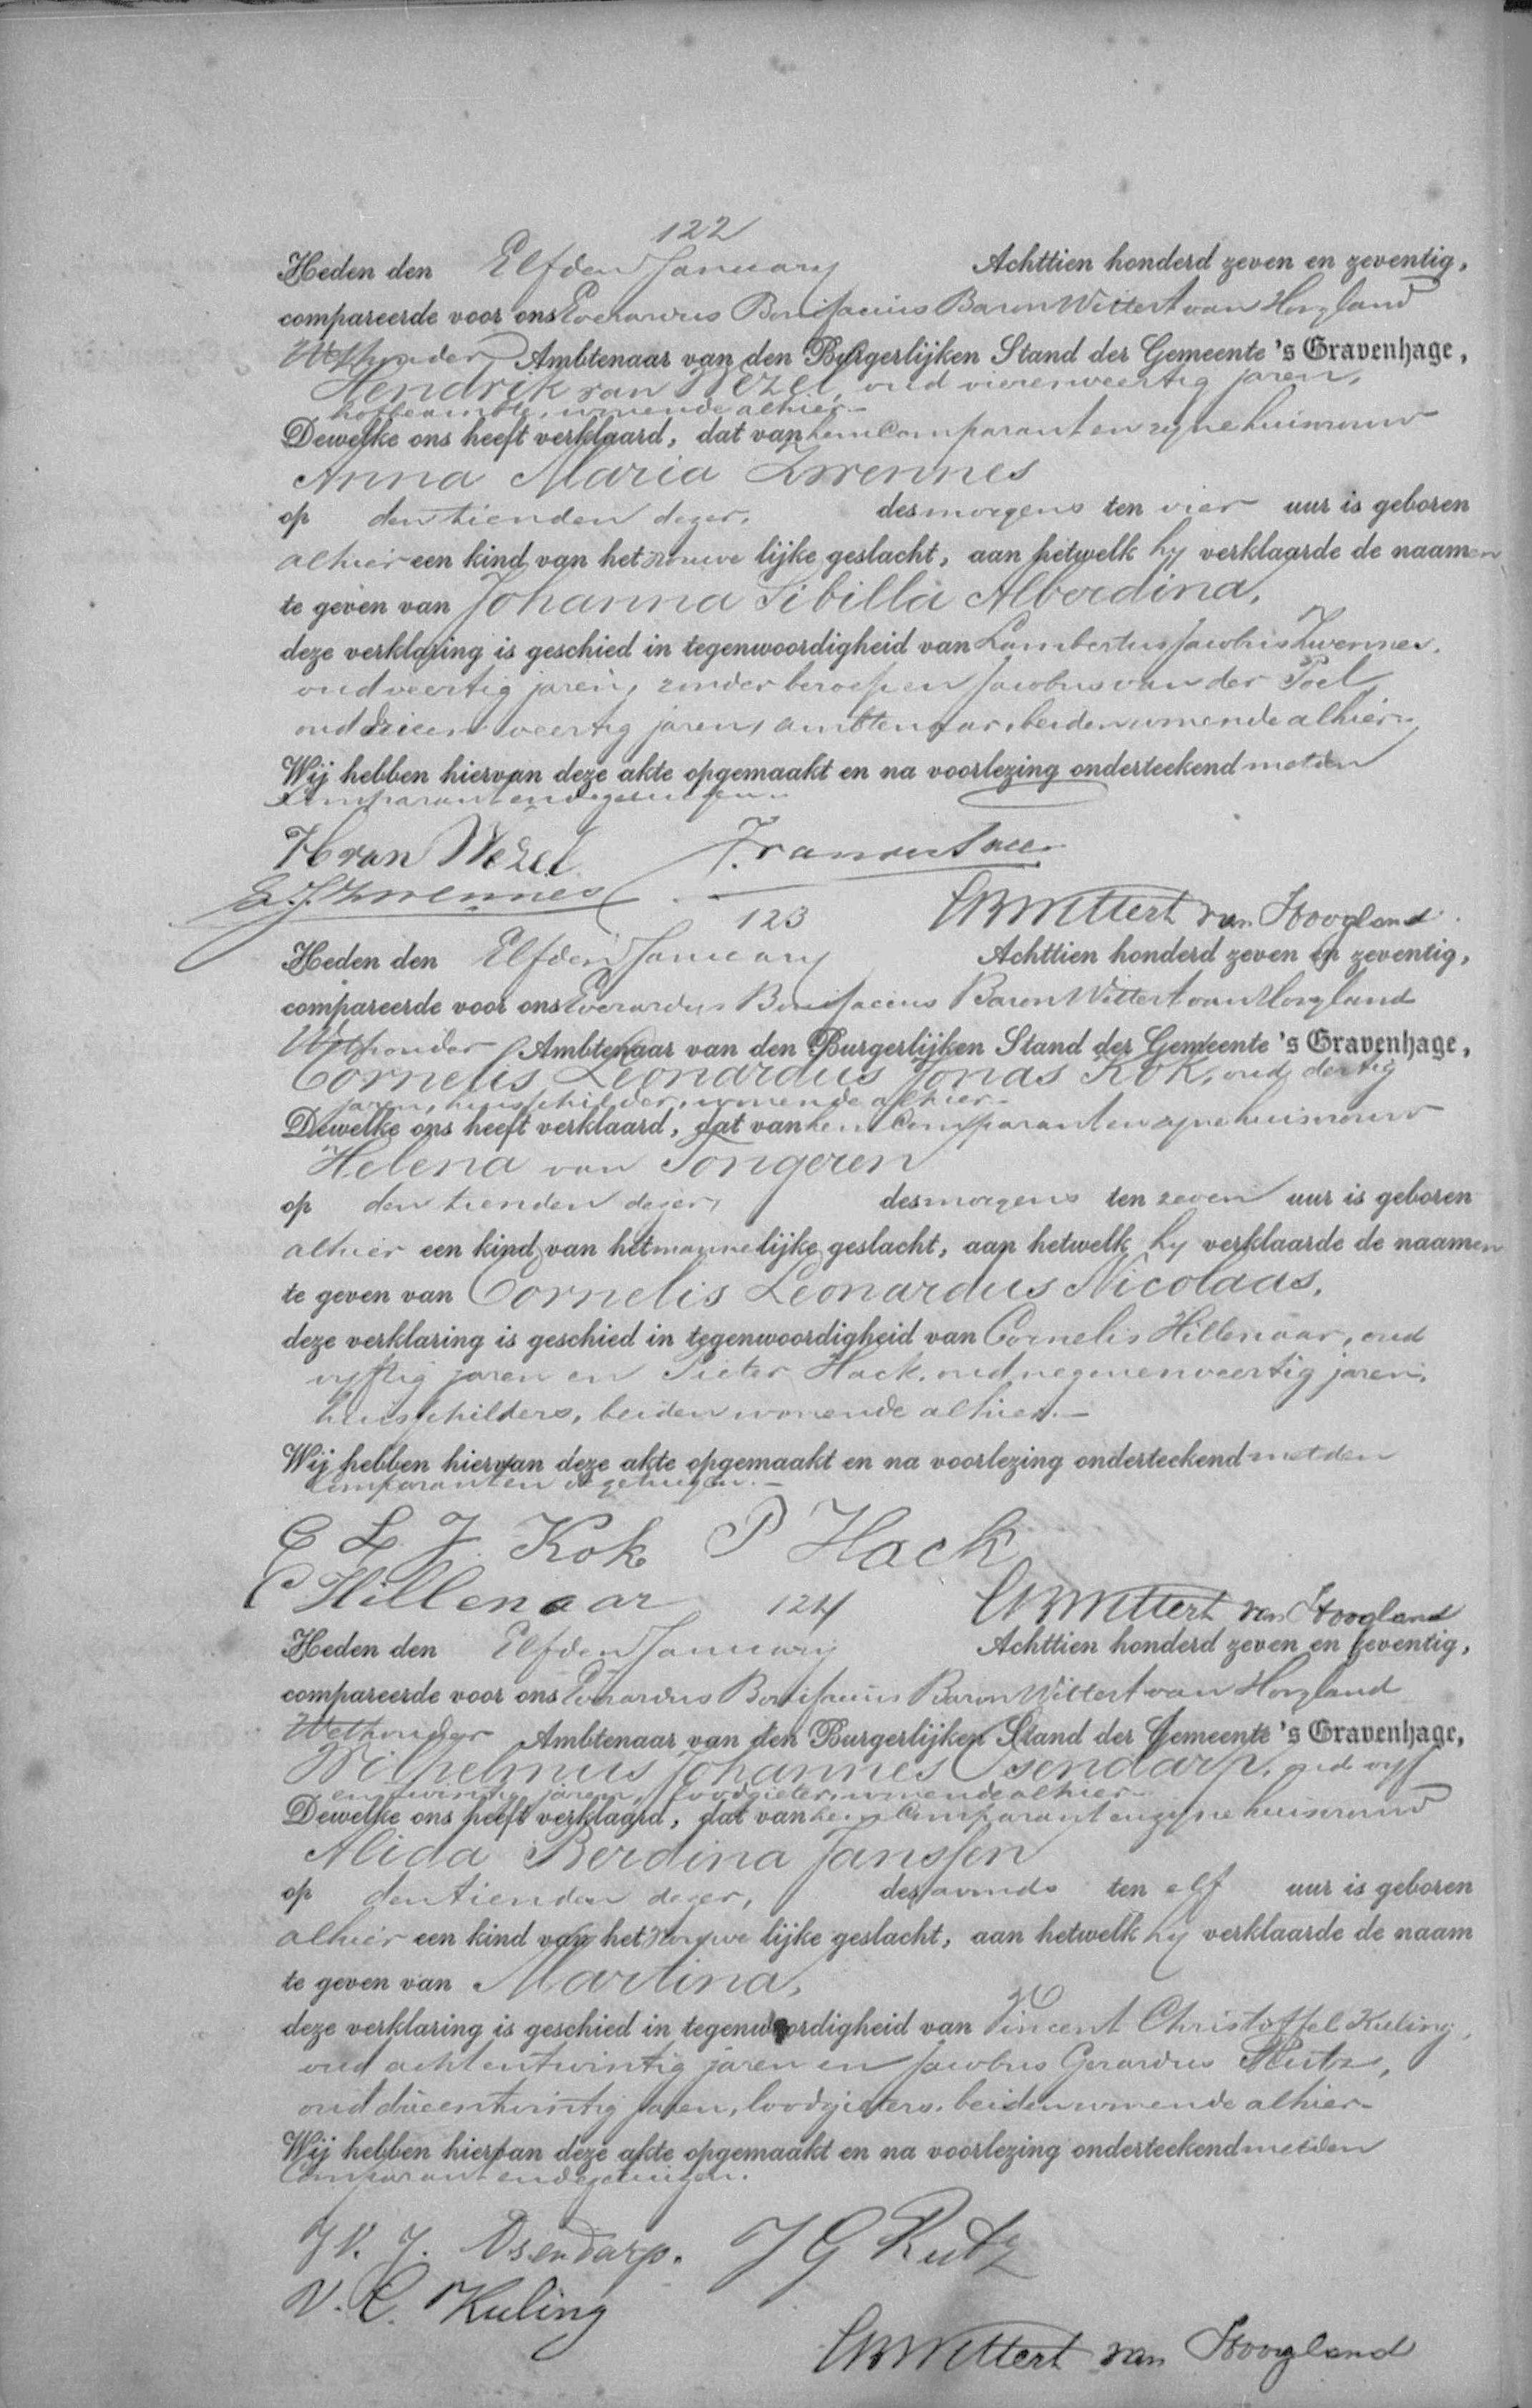 122
Heden den Elfden January Achttien honderd zeven en zeventig,
compareerde voor ons Everardus Bonifacius Baron Wittert van Hoogland
Wethouder Ambtenaar van den Burgerlijken Stand der Gemeente 's Gravenhage,
Hendrik van Wezel, oud vierenveertig jaren,
hofbeambte, wonende alhier
Dewelke ons heeft verklaard, dat van hem Comparant en zyne huisvrouw
Anna Maria Zwennes
op den tienden dezer, des morgens ten vier uur is geboren
alhier een kind van het vrouwe lijke geslacht, aan hetwelk hy verklaarde de naamen
te geven van Johanna Sibilla Alberdina,
deze verklaring is geschied in tegenwoordigheid van Lambertus Jacobus Zwennes,
oud veertig jaren, zonder beroep en Jacobus van der Poel,
oud drieenveertig jaren, ambtenaar, beiden wonende alhier
Wij hebben hiervan deze akte opgemaakt en na voorlezing onderteekend met den
Comparant en de getuigen
H van Wezel
L. J. Zwennes
EBWittert van Hoogland
123
Heden den Elfden January Achttien honderd zeven en zeventig,
compareerde voor ons Everardus Bonifacius Baron Wittert van Hoogland
Wethouder Ambtenaar van den Burgerlijken Stand der Gemeente 's Gravenhage,
Cornelis Leonardus Jonas Kok, oud dertig
jaren, huisschilder, wonende alhier
Dewelke ons heeft verklaard, dat van hem Comparant en zyne huisvrouw
Helena van Tongeren
op den tienden dezer, des morgens ten zeven uur is geboren
alhier een kind van het manne lijke geslacht, aan hetwelk hy verklaarde de naamen
te geven van Cornelis Leonardus Nicolaas,
deze verklaring is geschied in tegenwoordigheid van Cornelis Hillenaar, oud
vyftig jaren en Pieter Hack, oud negenenveertig jaren,
huisschilders, beiden wonende alhier.
Wij hebben hiervan deze akte opgemaakt en na voorlezing onderteekend met den
Comparant en de getuigen.
C L J. Kok P Hack
C Hillenaar
EBWittert van Hoogland
124
Heden den Elfden January Achttien honderd zeven en zeventig,
compareerde voor ons Everardus Bonifacius Baron Wittert van Hoogland
Wethouder Ambtenaar van den Burgerlijken Stand der Gemeente 's Gravenhage,
Wilhelmus Johannes Osendarp, oud vyf
en twintig jaren, loodgieter, wonende alhier
Dewelke ons heeft verklaard, dat van hem Comparant en zyne huisvrouw
Alida Berdina Janssen
op den tienden dezer, des avonds ten elf uur is geboren
alhier een kind van het vrouwe lijke geslacht, aan hetwelk hy verklaarde de naam
te geven van Martina,
deze verklaring is geschied in tegenwoordigheid van Vincent Christoffel Kuling,
oud achtentwintig jaren en Jacobus Gerardus Rutz,
oud drieentwintig jaren, loodgieters, beiden wonende alhier
Wij hebben hiervan deze akte opgemaakt en na voorlezing onderteekend met den
Comparant en de getuigen.
W. J. Osendarp. J G Rutz
V. C. Kuling
EBWittert van Hoogland